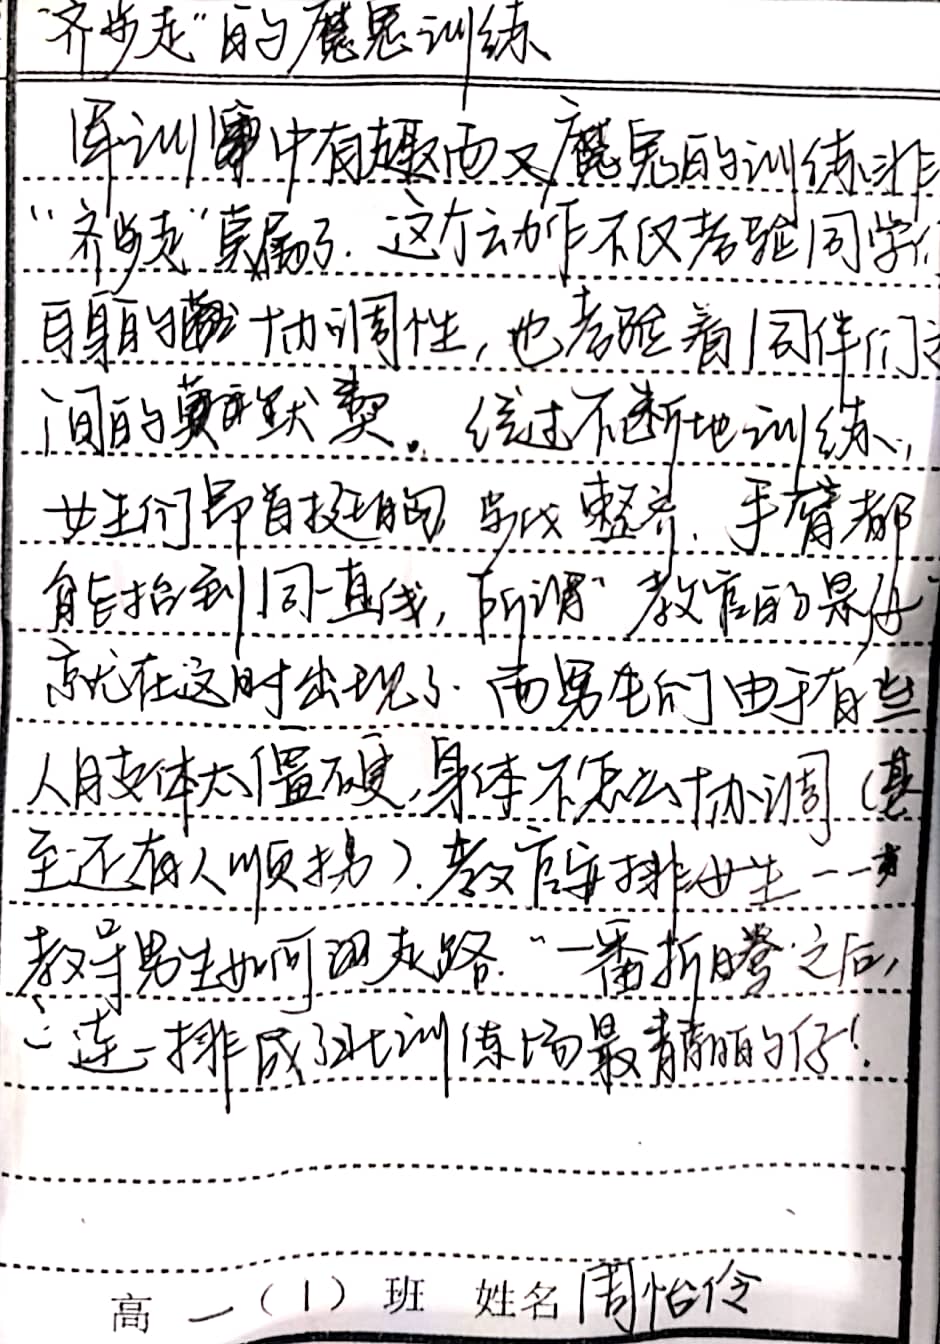 “齐步走”的魔鬼训练
军训中有趣而又魔鬼的训练非
“齐步走”莫属了.这个动作不仅考验同学们
自身的协调性,也考验着同伴们之
间的默契。经过不断地训练,
女生们昂首挺胸,步伐整齐.手臂都
能抬到同一直线,所谓“教官的最好”
就在这时出现了.而男生们由于有些
人肢体太僵硬,身体不怎么协调(甚
至还有人顺拐).教官安排女生一一
教导男生如何走路.“一番折腾”之后,
二连一排成了北训练场最靓的仔!
高一(1)班 姓名 周怡伶